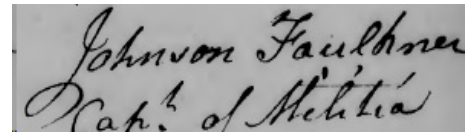 Johnson Faulkner
Capt. of Militia